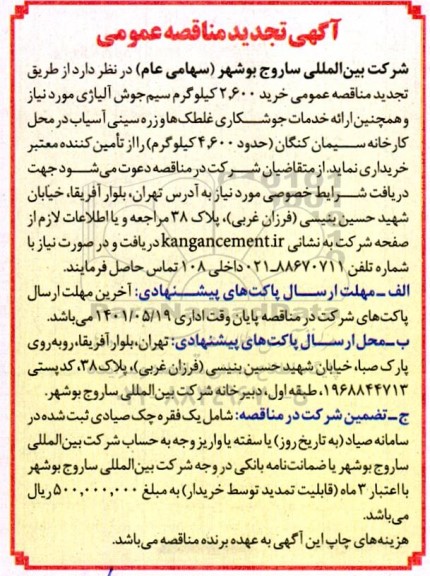 آگهی تجدید مناقصه عمومی
شرکت بین‌المللی ساروج بوشهر (سهامی عام) در نظر دارد از طریق
تجدید مناقصه عمومی خرید ۲٫۶۰۰ کیلوگرم سیم جوش آلیاژی مورد نیاز
و همچنین ارائه خدمات جوشکاری غلطک‌ها و زره سینی آسیاب در محل
کارخانه سیمان کنگان (حدود ۴٫۶۰۰ کیلوگرم) را از تأمین کننده معتبر
خریداری نماید. از متقاضیان شرکت در مناقصه دعوت می‌شود جهت
دریافت شرایط خصوصی مورد نیاز به آدرس تهران، بلوار آفریقا، خیابان
شهید حسین بنیسی (فرزان غربی)، پلاک ۳۸ مراجعه و یا اطلاعات لازم از
صفحه شرکت به نشانی kangancement.ir دریافت و در صورت نیاز با
شماره تلفن ۸۸۶۷۰۷۱۱-۰۲۱ داخلی ۱۰۸ تماس حاصل فرمایند.
الف ـ مهلت ارسال پاکت‌های پیشنهادی: آخرین مهلت ارسال
پاکت‌های شرکت در مناقصه پایان وقت اداری ۱۴۰۱/۰۵/۱۹ می‌باشد.
ب ـ محل ارسال پاکت‌های پیشنهادی: تهران، بلوار آفریقا، روبه‌روی
پارک صبا، خیابان شهید حسین بنیسی (فرزان غربی)، پلاک ۳۸، کدپستی
۱۹۶۸۸۴۴۷۱۳، طبقه اول، دبیرخانه شرکت بین‌المللی ساروج بوشهر.
ج ـ تضمین شرکت در مناقصه: شامل یک فقره چک صیادی ثبت شده در
سامانه صیاد (به تاریخ روز) یا سفته یا واریز وجه به حساب شرکت بین‌المللی
ساروج بوشهر یا ضمانت‌نامه بانکی در وجه شرکت بین‌المللی ساروج بوشهر
با اعتبار ۳ ماه (قابلیت تمدید توسط خریدار) به مبلغ ۵۰۰٫۰۰۰٫۰۰۰ ریال
می‌باشد.
هزینه‌های چاپ این آگهی به عهده برنده مناقصه می‌باشد.